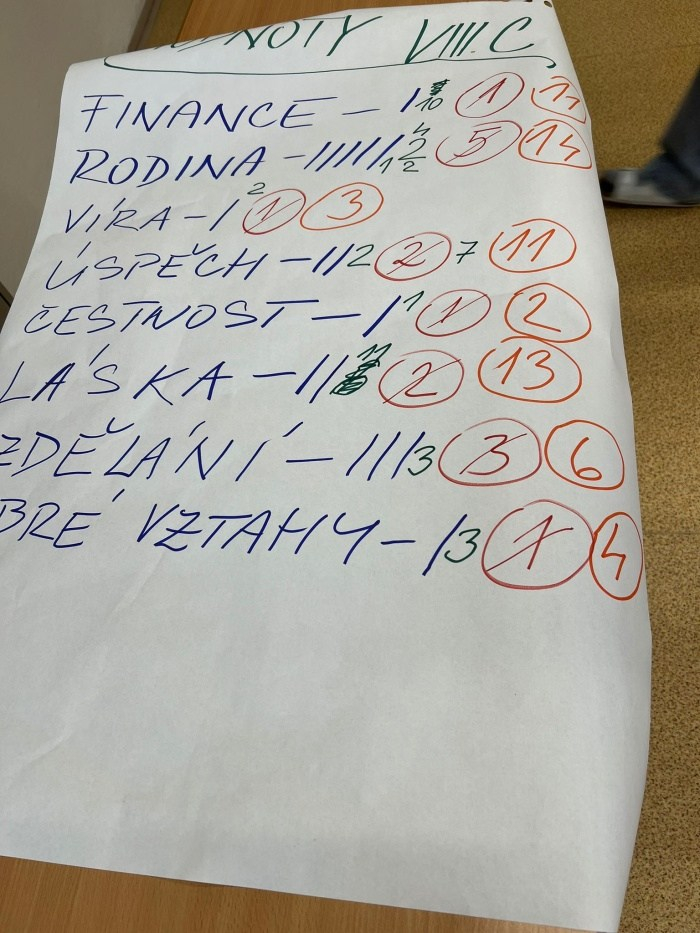 NOTY VIII.C
FINANCE - I 10 1 11
RODINA - IIIIII 1 4 2 2 5 14
VÍRA - I 2 1 3
ÚSPĚCH - II 2 2 7 11
ČESTNOST - I 1 1 2
LÁSKA - II 11 2 13
ZDĚLÁNÍ - III 3 3 6
BRÉ VZTAHY - I 3 1 4